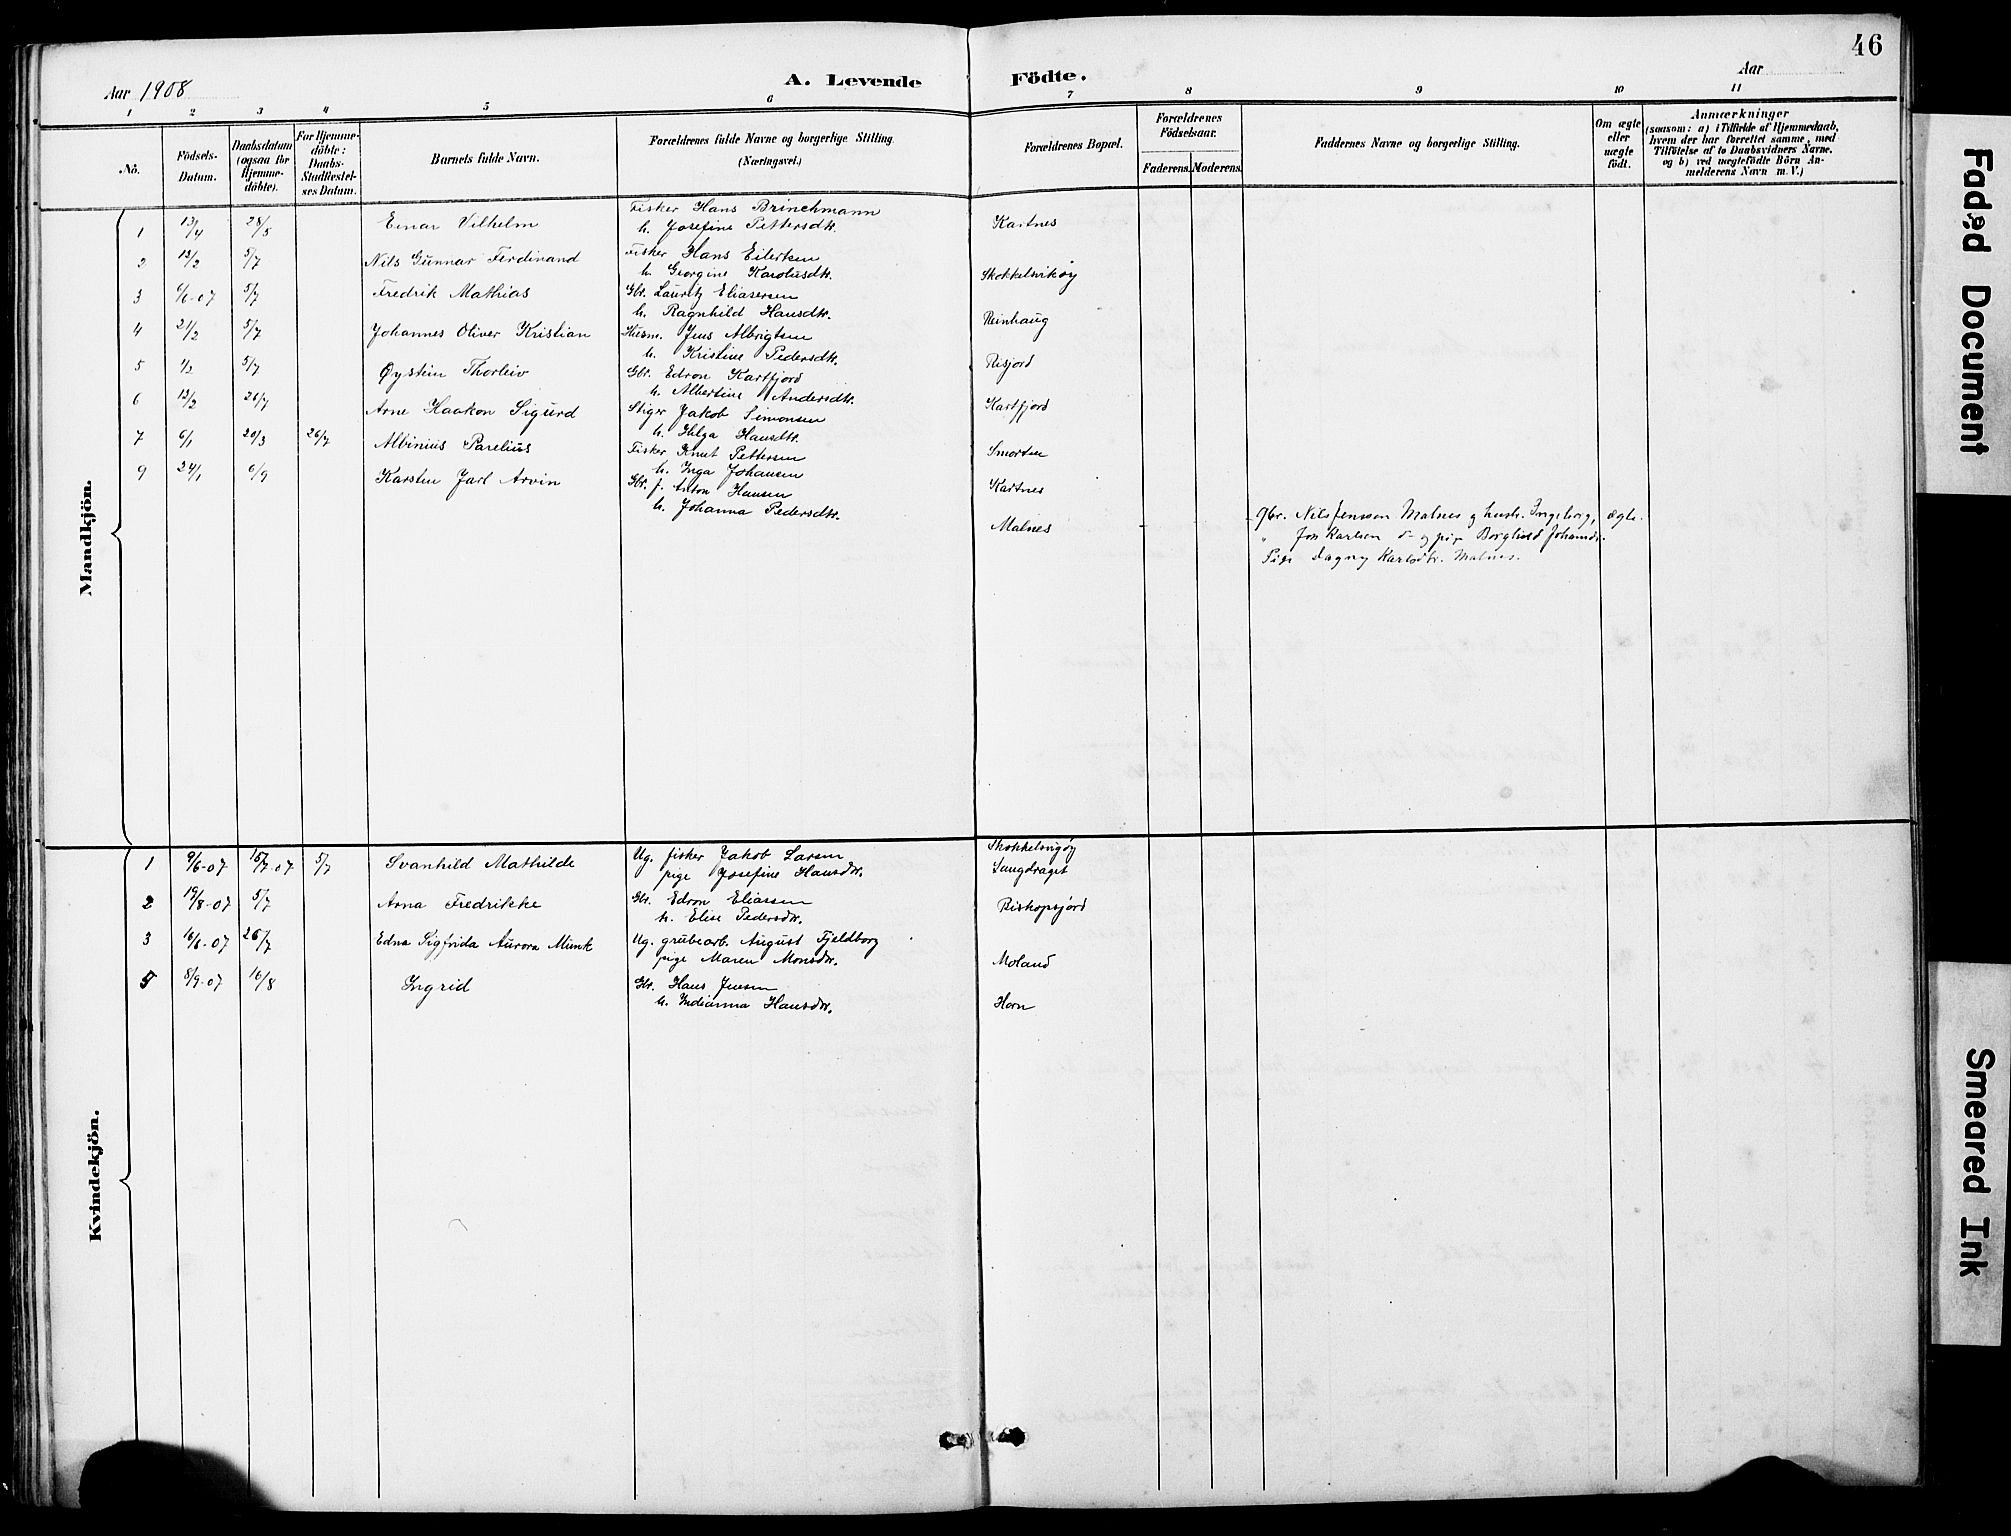 46
Aar 1908
A. Levende Födte.
Aar
1 2 3 4 5 6 7 8 9 10 11
No.
Födsels-Datum.
Daabsdatum (ogsaa for Hjemme-döbte).
For Hjemme-döbte: Daabs-Stadfæstel-ses Datum.
Barnets fulde Navn.
Forældrenes fulde Navne og borgerlige Stilling (Næringsvei.)
Forældrenes Bopæl.
Forældrenes Födselsaar.
Faderens. Moderens.
Faddernes Navne og borgerlige Stilling.
Om ægte eller uægte födt.
Anmærkninger
(saasom: a) i Tilfælde af Hjemmedaab, hvem der har forrettet samme, med Tilföielse af to Daabsvidners Navne. og b) ved uægtefödte Börn An-melderens Navn m. V.)
Mandkjön.
1 13/4 28/5 Einar Vilhelm Fisker Hans Brinchmann
h. Josefine Pettersdtr. Kartnes
2 13/2 5/7 Nils Gunnar Ferdinand Fisker Hans Eilertsen
h. Georgine Karolusdtr. Skokkelvikøy
3 6/6-07 5/7 Fredrik Mathias Gbr. Lauritz Eliasersen
h. Ragnhild Hansdtr. Reinhaug
4 21/2 5/7 Johannes Oliver Kristian Husm. Jens Albrigtsen
h. Kristine Pedersdtr. Risjord
5 5/7 Øystein Thorleiv Gbr. Edron Kartfjord
h. Albertine Andersdtr. Kartfjord
6 13/2 26/7 Arne Haakon Sigurd Stiger Jakob Simonsen
h. Helga Hansdtr. Smorten
7 6/1 20/3 26/7 Albinius Parelius Fisker Knut Pettersen
h. Inga Johansen Kartnes
9 24/1 6/9 Karsten Jarl Arvin Gbr. f. Anton Hansen
h. Johanna Pedersdtr. Malnes
Gbr. Nils Jensson Malnes g hustr. Ingeborg, ægte.
" Jon Karlsen d- g pige Borghild Johansdr.
Pige Dagny Karlsdtr. Malnes.
Kvindekjön.
1 9/6-07 15/7-07 5/7 Svanhild Mathilde Ug. fisker Jakob Larsen Skokkelvigøy
pige Josefine Hansdtr. Sangdraget
2 19/8-07 5/7 Arna Fredrikke Gbr. Edron Eliassen
h. Elise Pedersdtr. Riskopsjord
3 16/6-07 26/7 Edna Sigfrida Aurora Munk Ug. grubearb. August Fjeldborg
pige Maren Monsdtr. Moland
5 8/9-07 16/8 Ingrid Gbr. Hans Jensen
h. Indianna Hansdtr. Horn
Faded Document
Smeared Ink